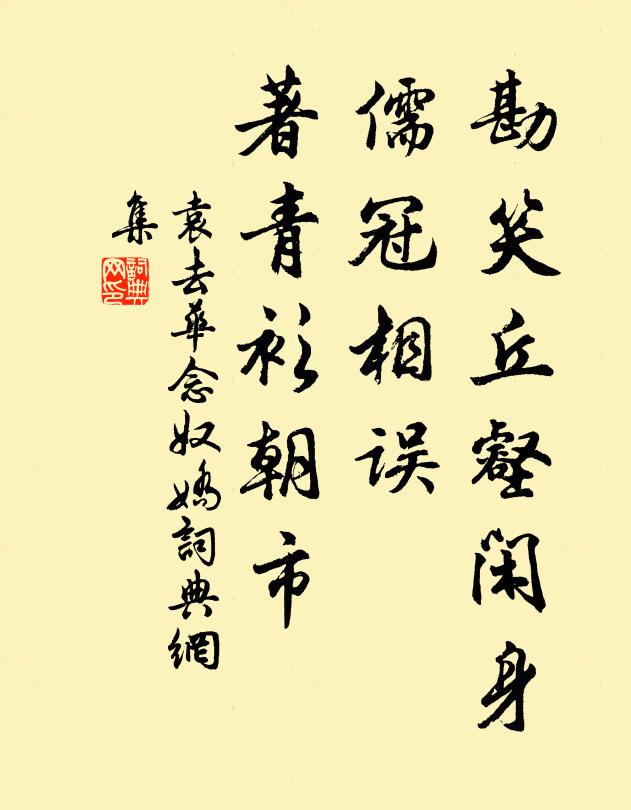 勘笑丘壑闲身
儒冠相误
著青衫朝市
袁去華念奴嬌詞典網
集
詞典
网印